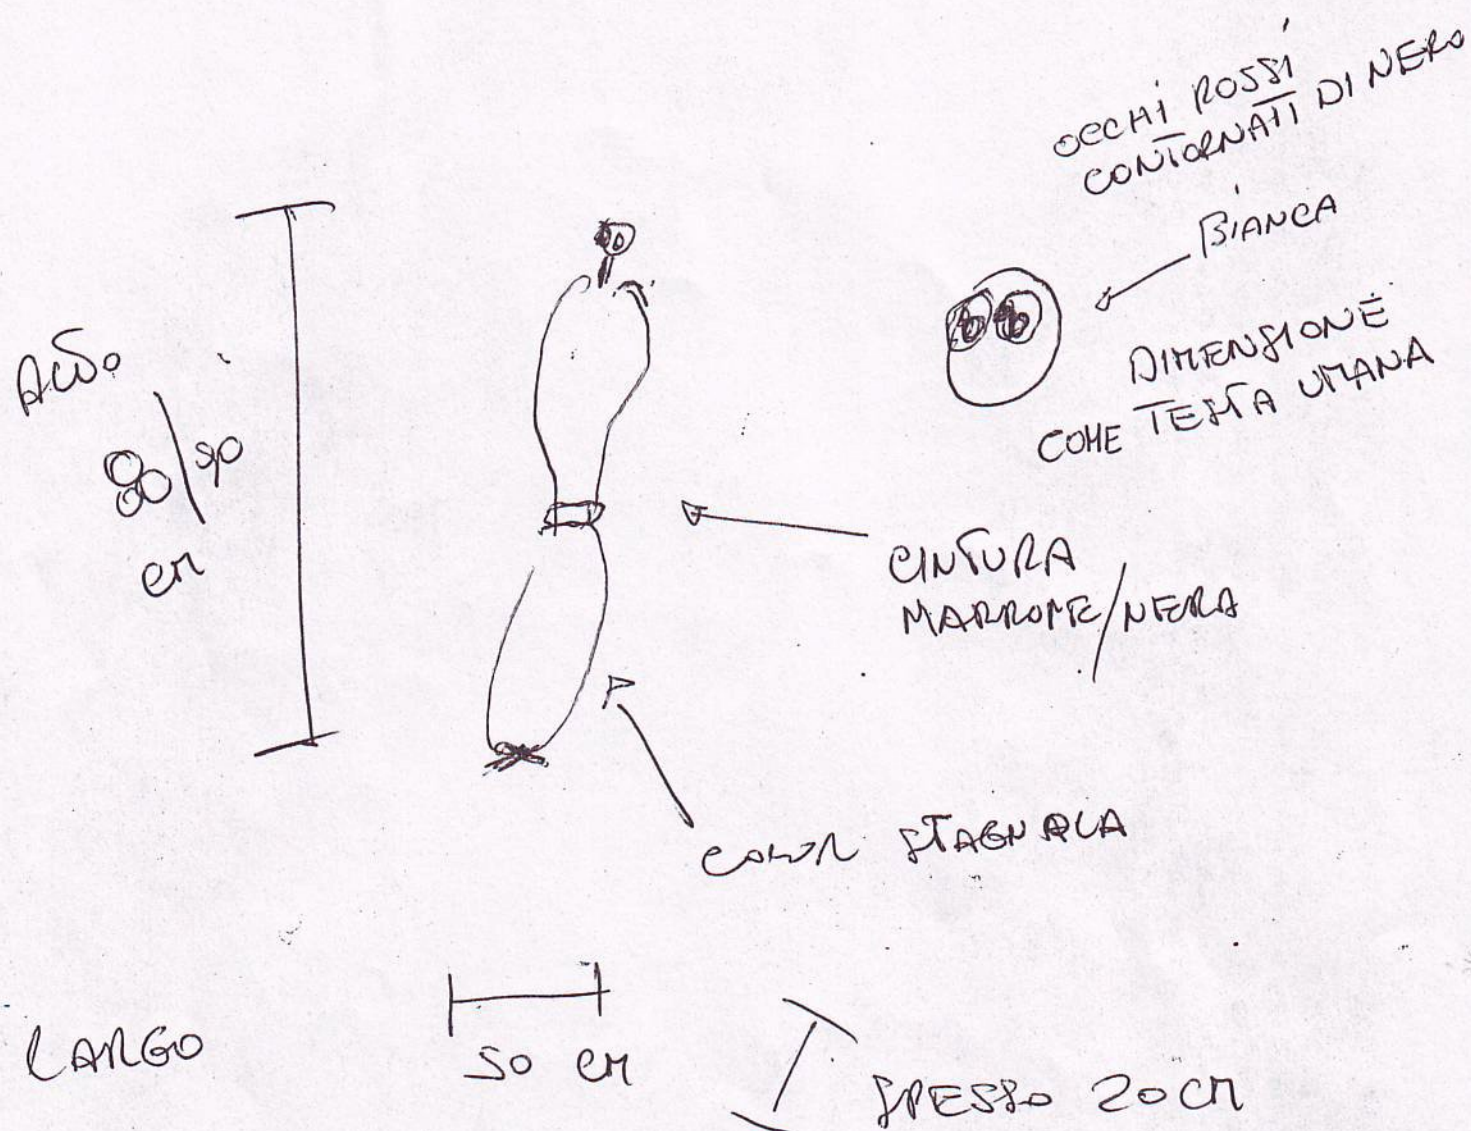 OCCHI ROSSI
CONTORNATI DI NERO
BIANCA
DIMENSIONE
COME TESTA UMANA
ALTO
80/90
cm
CINTURA
MARRONE/NERA
COLOR STAGNOLA
LARGO
50 cm
SPESSO 20 cm